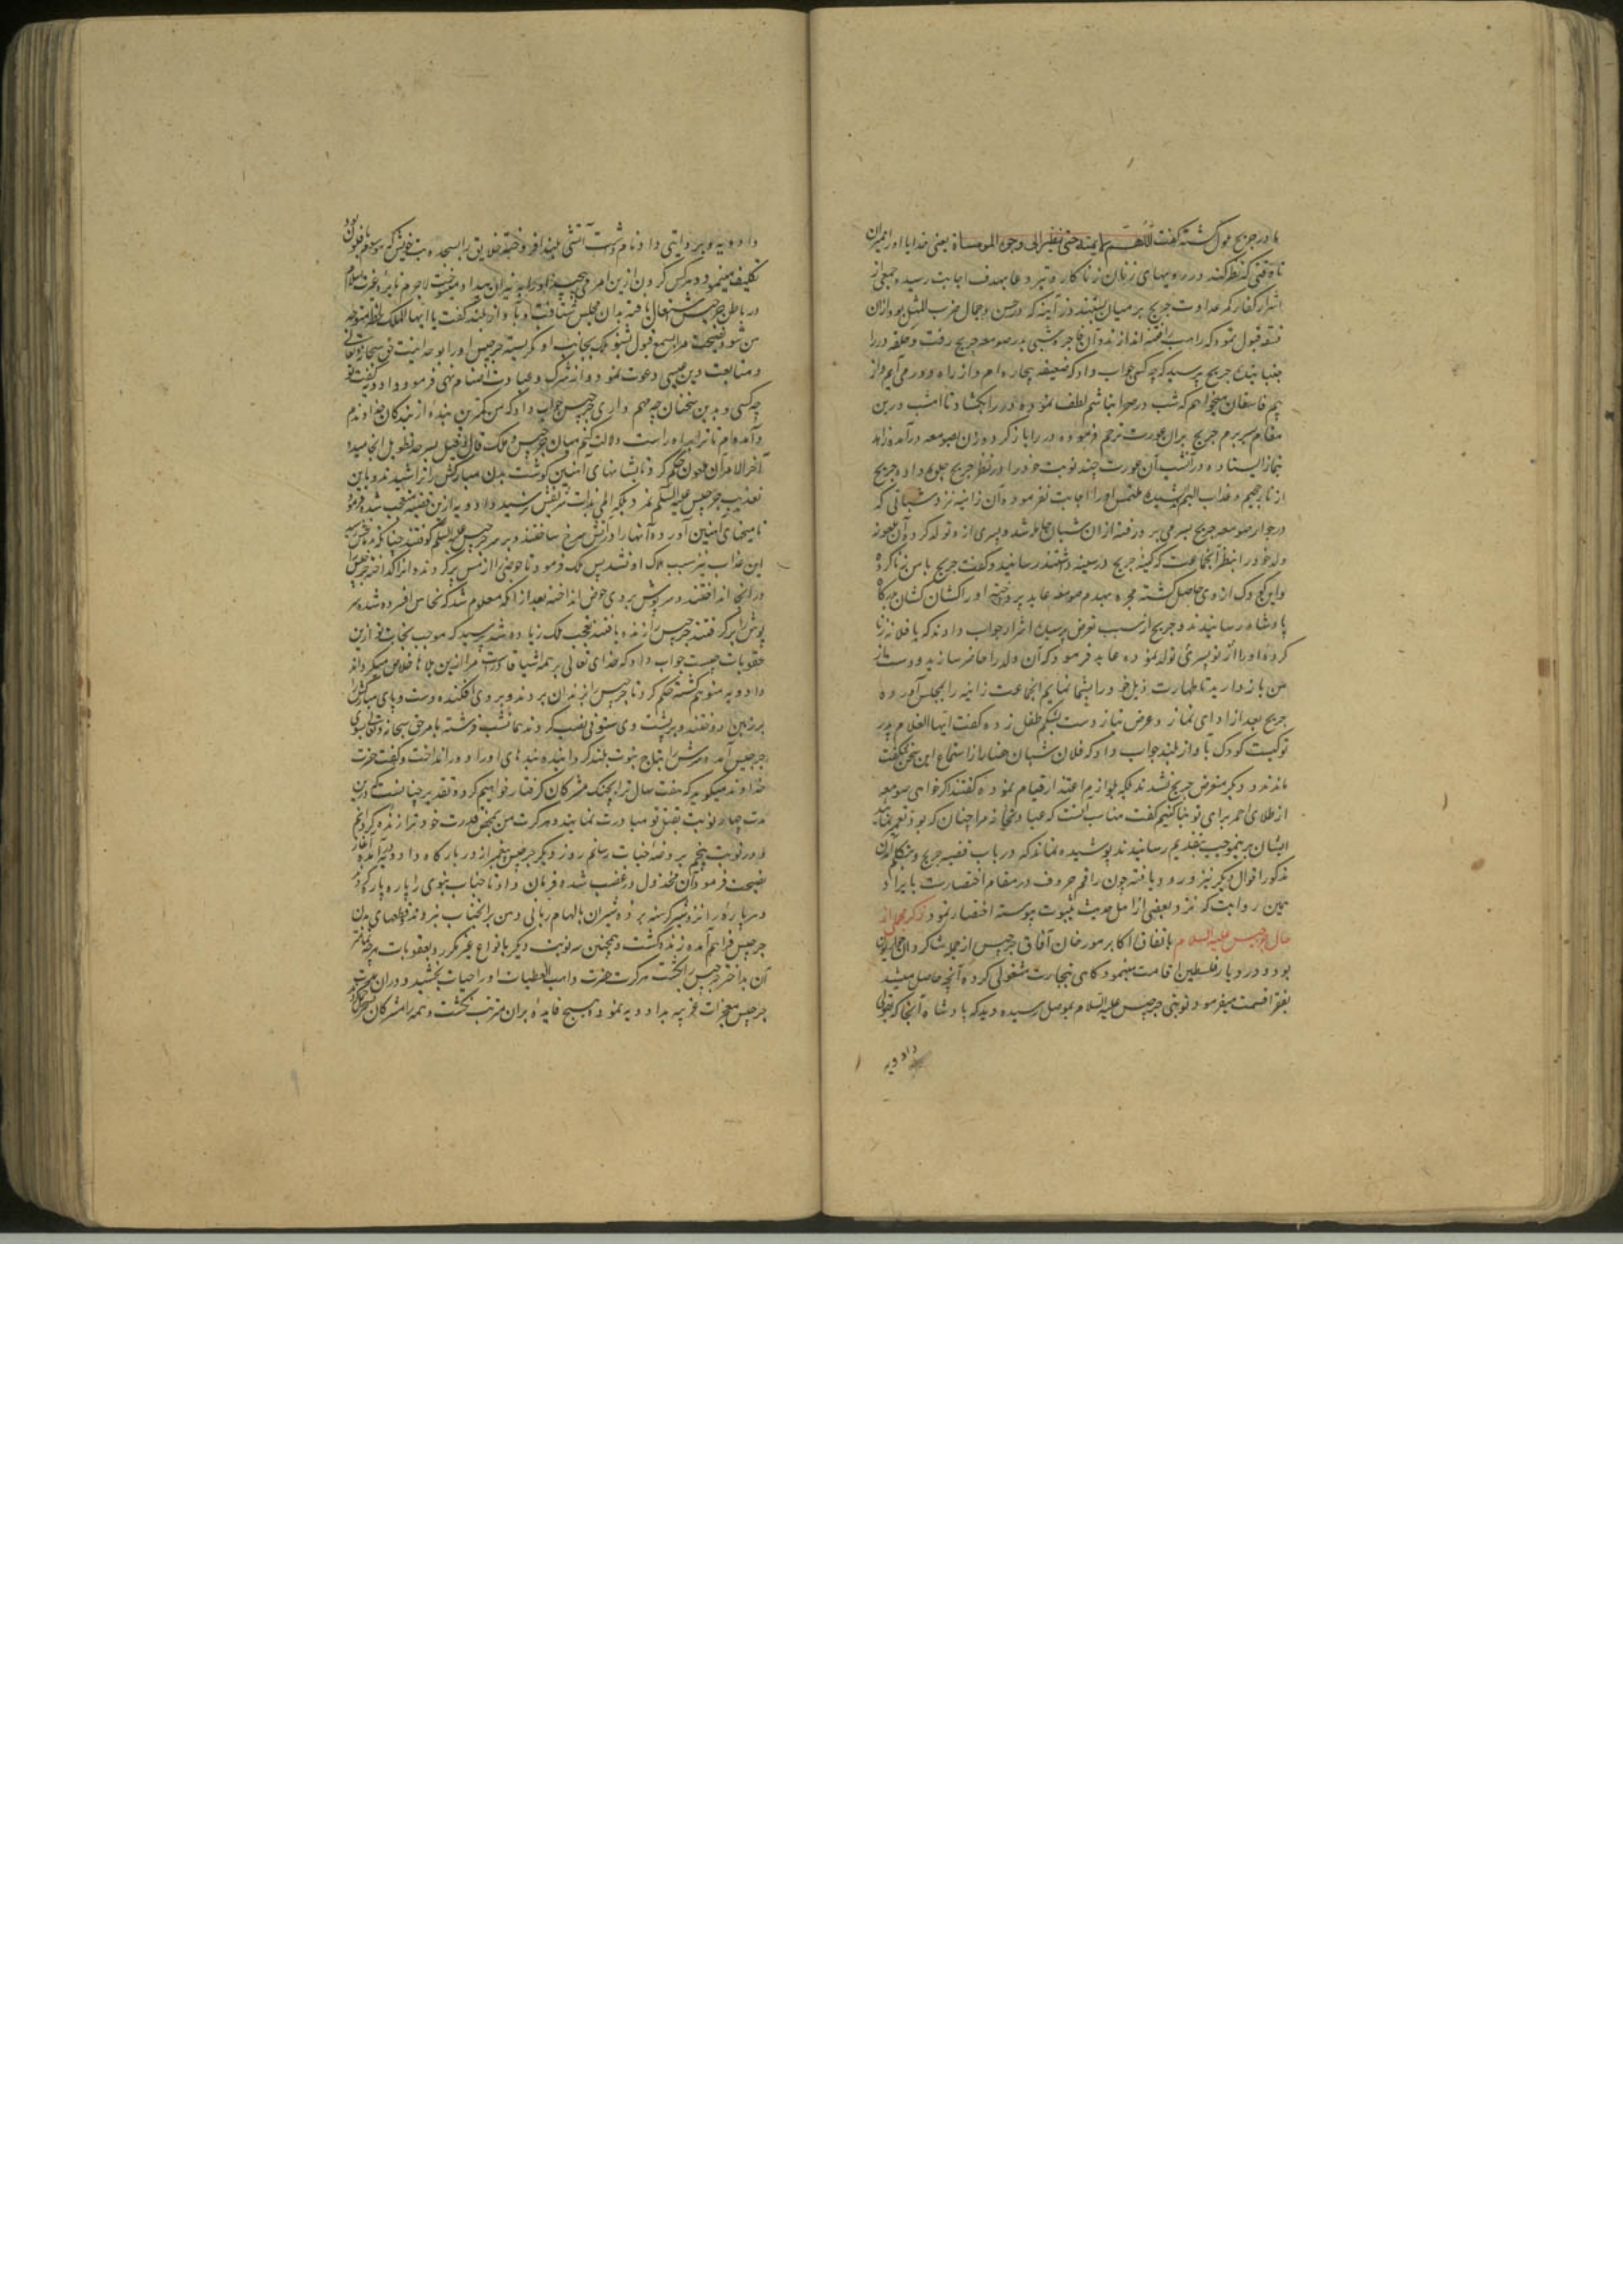 مادر جریج ملول کشته کفت اللهم لا یمیته حتی ینظر الی وجوه المومسات یعنی خدایا او را نمیران
تا وقتی که نظر کند در رویهای زنان زناکار و تیر دعا بهدف اجابت رسیده جمعی از
اشرار کفار کمر عداوت جریج بر میان بستند و زانیه که در حسن و جمال ضرب المثل بود از ان
فسقه قبول نمود که راهب را بفتنه اندازد و آن فاجره شبی بدر صومعه جریج رفت و حلقه در را
بجنبانید جریج پرسید که چه کسی جواب داد که ضعیفه بیچاره ام و از راه دور می آیم و از
بیم فاسقان میخواهم که شب در صحرا نباشم لطف نموده در را بکشاد تا امشب درین
مقام بسر برم جریج بران عورت ترحم فرموده در را باز کرد و زن بصومعه درآمده زاهد
بنماز ایستاد و در آنشب آن عورت چند نوبت خود را در نظر جریج جلوه داده جریج
از نار جحیم و عذاب الیم اندیشیده ملتمس او را اجابت نفرمود و آن زانیه نزد شبانی که
در جوار صومعه جریج بسر می برد رفته از ان شبان حامله شد و پسری از و تولد کرد و آن ملعونه
ولد خود را بنظر آنجماعت که کینه جریج در سینه داشتند رسانید و کفت جریج با من زنا کرده
و این کودک از وی حاصل کشته فجره بهدم صومعه عابد پرداخته او را کشان کشان بدرکاه
پادشاه رسانیدند و جریج از سبب تعرض پرسید اشرار جواب دادند که با فلانه زنا
کرده و او را از تو پسری تولد نموده عابد فرمود که آن ولد را حاضر سازید و دست از
من باز دارید تا طهارت ذیل خود را بشما نمایم آنجماعت زانیه را بمجلس آورده
جریج بعد از ادای نماز و عرض نیاز دست بشکم طفل زده کفت ایها الغلام پدر
تو کیست کودک بآواز بلند جواب داد که فلان شبان حضار از استماع این سخن شکفت
ماندند و دیکر متعرض جریج نشدند بلکه بلوازم اعتذار قیام نموده کفتند اگر خواهی صومعه
از طلای احمر برای تو بنا کنیم کفت مناسب آنست که عبادتخانه مرا چنان که بود تعمیر نمائید
ایشان برینموجب بتقدیم رسانیدند پوشیده نماند که در باب قضیه جریج و متکلم شدن
مذکور اقوال دیکر نیز ورود یافته چون راقم حروف در مقام اختصارست بایراد
همین روایت که نزد بعضی از اهل حدیث بثبوت پیوسته اختصار نمود ذکر مجملی از
حال جرجیس علیه السلام باتفاق اکابر مورخان آفاق جرجیس از جمله شاکردان حواریون
بود و در دیار فلسطین اقامت مینمود و کاهی بتجارت مشغولی کرده آنچه حاصل میشد
بفقرا قسمت میفرمود نوبتی جرجیس علیه السلام بموصل رسیده دید که پادشاه آنجا که بقولی
دادویه
دادویه و بروایتی دادنام داشت آتشی بلند افروخته خلایق را بسجده بت خویش که موسوم بافلون بود
تکلیف مینمود و هرکس کردن ازین امر می پیچید او را بدان نیران میسوخت لاجرم نایره غیرت اسلام
در باطن جرجیس اشتعال یافته بدان مجلس شتافت و بآواز بلند کفت یا ایها الملک لحظه متوجه
من شو و نصیحت مرا بسمع قبول بشنو ملک بجانب او نکریسته جرجیس او را بوحدانیت حق سبحانه و تعالی
و متابعت دین عیسی دعوت نمود و از شرک و عبادت اصنام نهی فرمود دادویه کفت تو
چه کسی و بدین سخنان چه مهم داری جرجیس جواب داد که من کمترین بنده از بندکان خداوندم
و آمده ام تا ترا براه راست دلالت کنم میان جرجیس و ملک قال و قیل بسرحد تطویل انجامیده
آخر الامر آن ملعون حکم کرد تا بشانهای آهنین کوشت بدن مبارکش را تراشیدند و باین
تعذیب جرجیس علیه السلام نمرد بلکه المی بذات شریفش نرسید دادویه ازین قضیه متعجب شده فرمود
تا میخهای آهنین آورده آنها را در آتش سرخ ساختند و بر سر جرجیس علیه السلام کوفتند چنانکه
این عذاب نیز سبب هلاک او نشد پس ملک فرمود تا حوضی را از مس پر کردند و انرا کداخته جرجیس را
در آنجا انداختند و سرپوش بر وی حوض انداخته بعد از آنکه معلوم شد که نحاس افسرده شده سر
پوش را برکرفتند جرجیس را زنده یافتند تعجب ملک زیاده شد پرسید که موجب نجات تو ازین
عقوبات چیست جواب داد که خدای تعالی بر همه اشیا قادرست مرا ازین بلاها خلاص میکرداند
دادویه متوهم کشته حکم کرد تا جرجیس را بزندان بردند و بروی افکنده دست و پای مبارکش را
بر زمین دوختند و بر پشت وی ستونی نصب کردند همانشب فرشته بامر حق سبحانه و تعالی بسوی
جرجیس آمده سرش را بتاج نبوت بلند کردانید و بندهای او را دور انداخت و کفت حضرت
خداوند میکوید که هفت سال ترا بچنک مشرکان کرفتار خواهیم کرد و تقدیر چنانست که درین
مدت چهار نوبت بقتل تو مبادرت نمایند و هر کرت من بمحض قدرت خود ترا زنده کردانم
و در نوبت پنجم بروضه جنات رسانم روز دیکر جرجیس پیغمبر از در بارکاه دادویه درآمده آغاز
نصیحت فرمود آن مخذول در غضب شده فرمان داد تا جناب نبوی را پاره پاره کرده
و هر پاره را نزد شیر کرسنه بردند شیران بالهام ربانی دهن بر آنجناب نبردند و قطعهای بدن
جرجیس فراهم آمده زنده کشت و همچنین سه نوبت دیکر بانواع غیر مکرر و بعقوبات هرچه تمامتر
آن بداختر جرجیس را بکشت هر کرت حضرت واهب العطیات او را حیات بخشید و دران مدت
جرجیس معجزات غریبه بدادویه نمود و هیچ فایده بران مترتب نکشت و همه را مشرکان بسحر